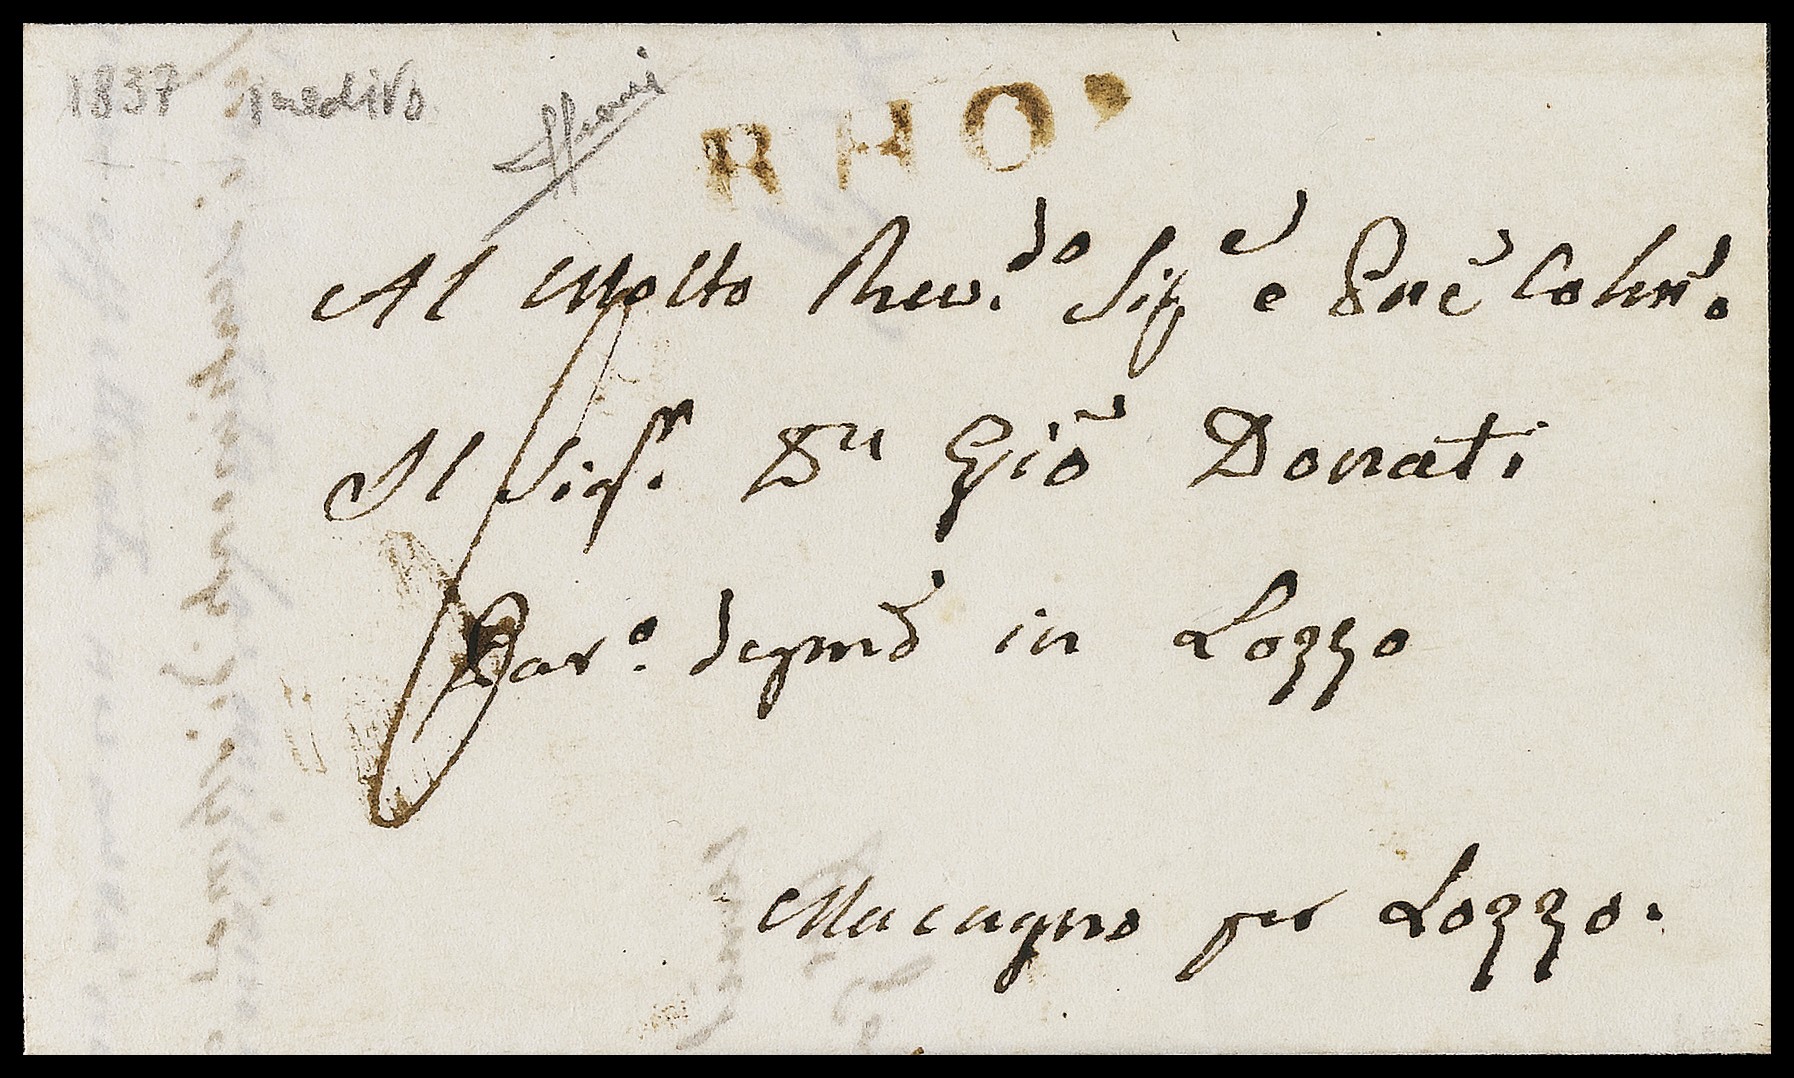 1837 inedito
RHO'
Al Molto Rev.do Sig.e e Pñe Colmõ.
Il Sigr. Dn Giõ Donati
Par.o degmõ in Lozzo
Macagno per Lozzo.